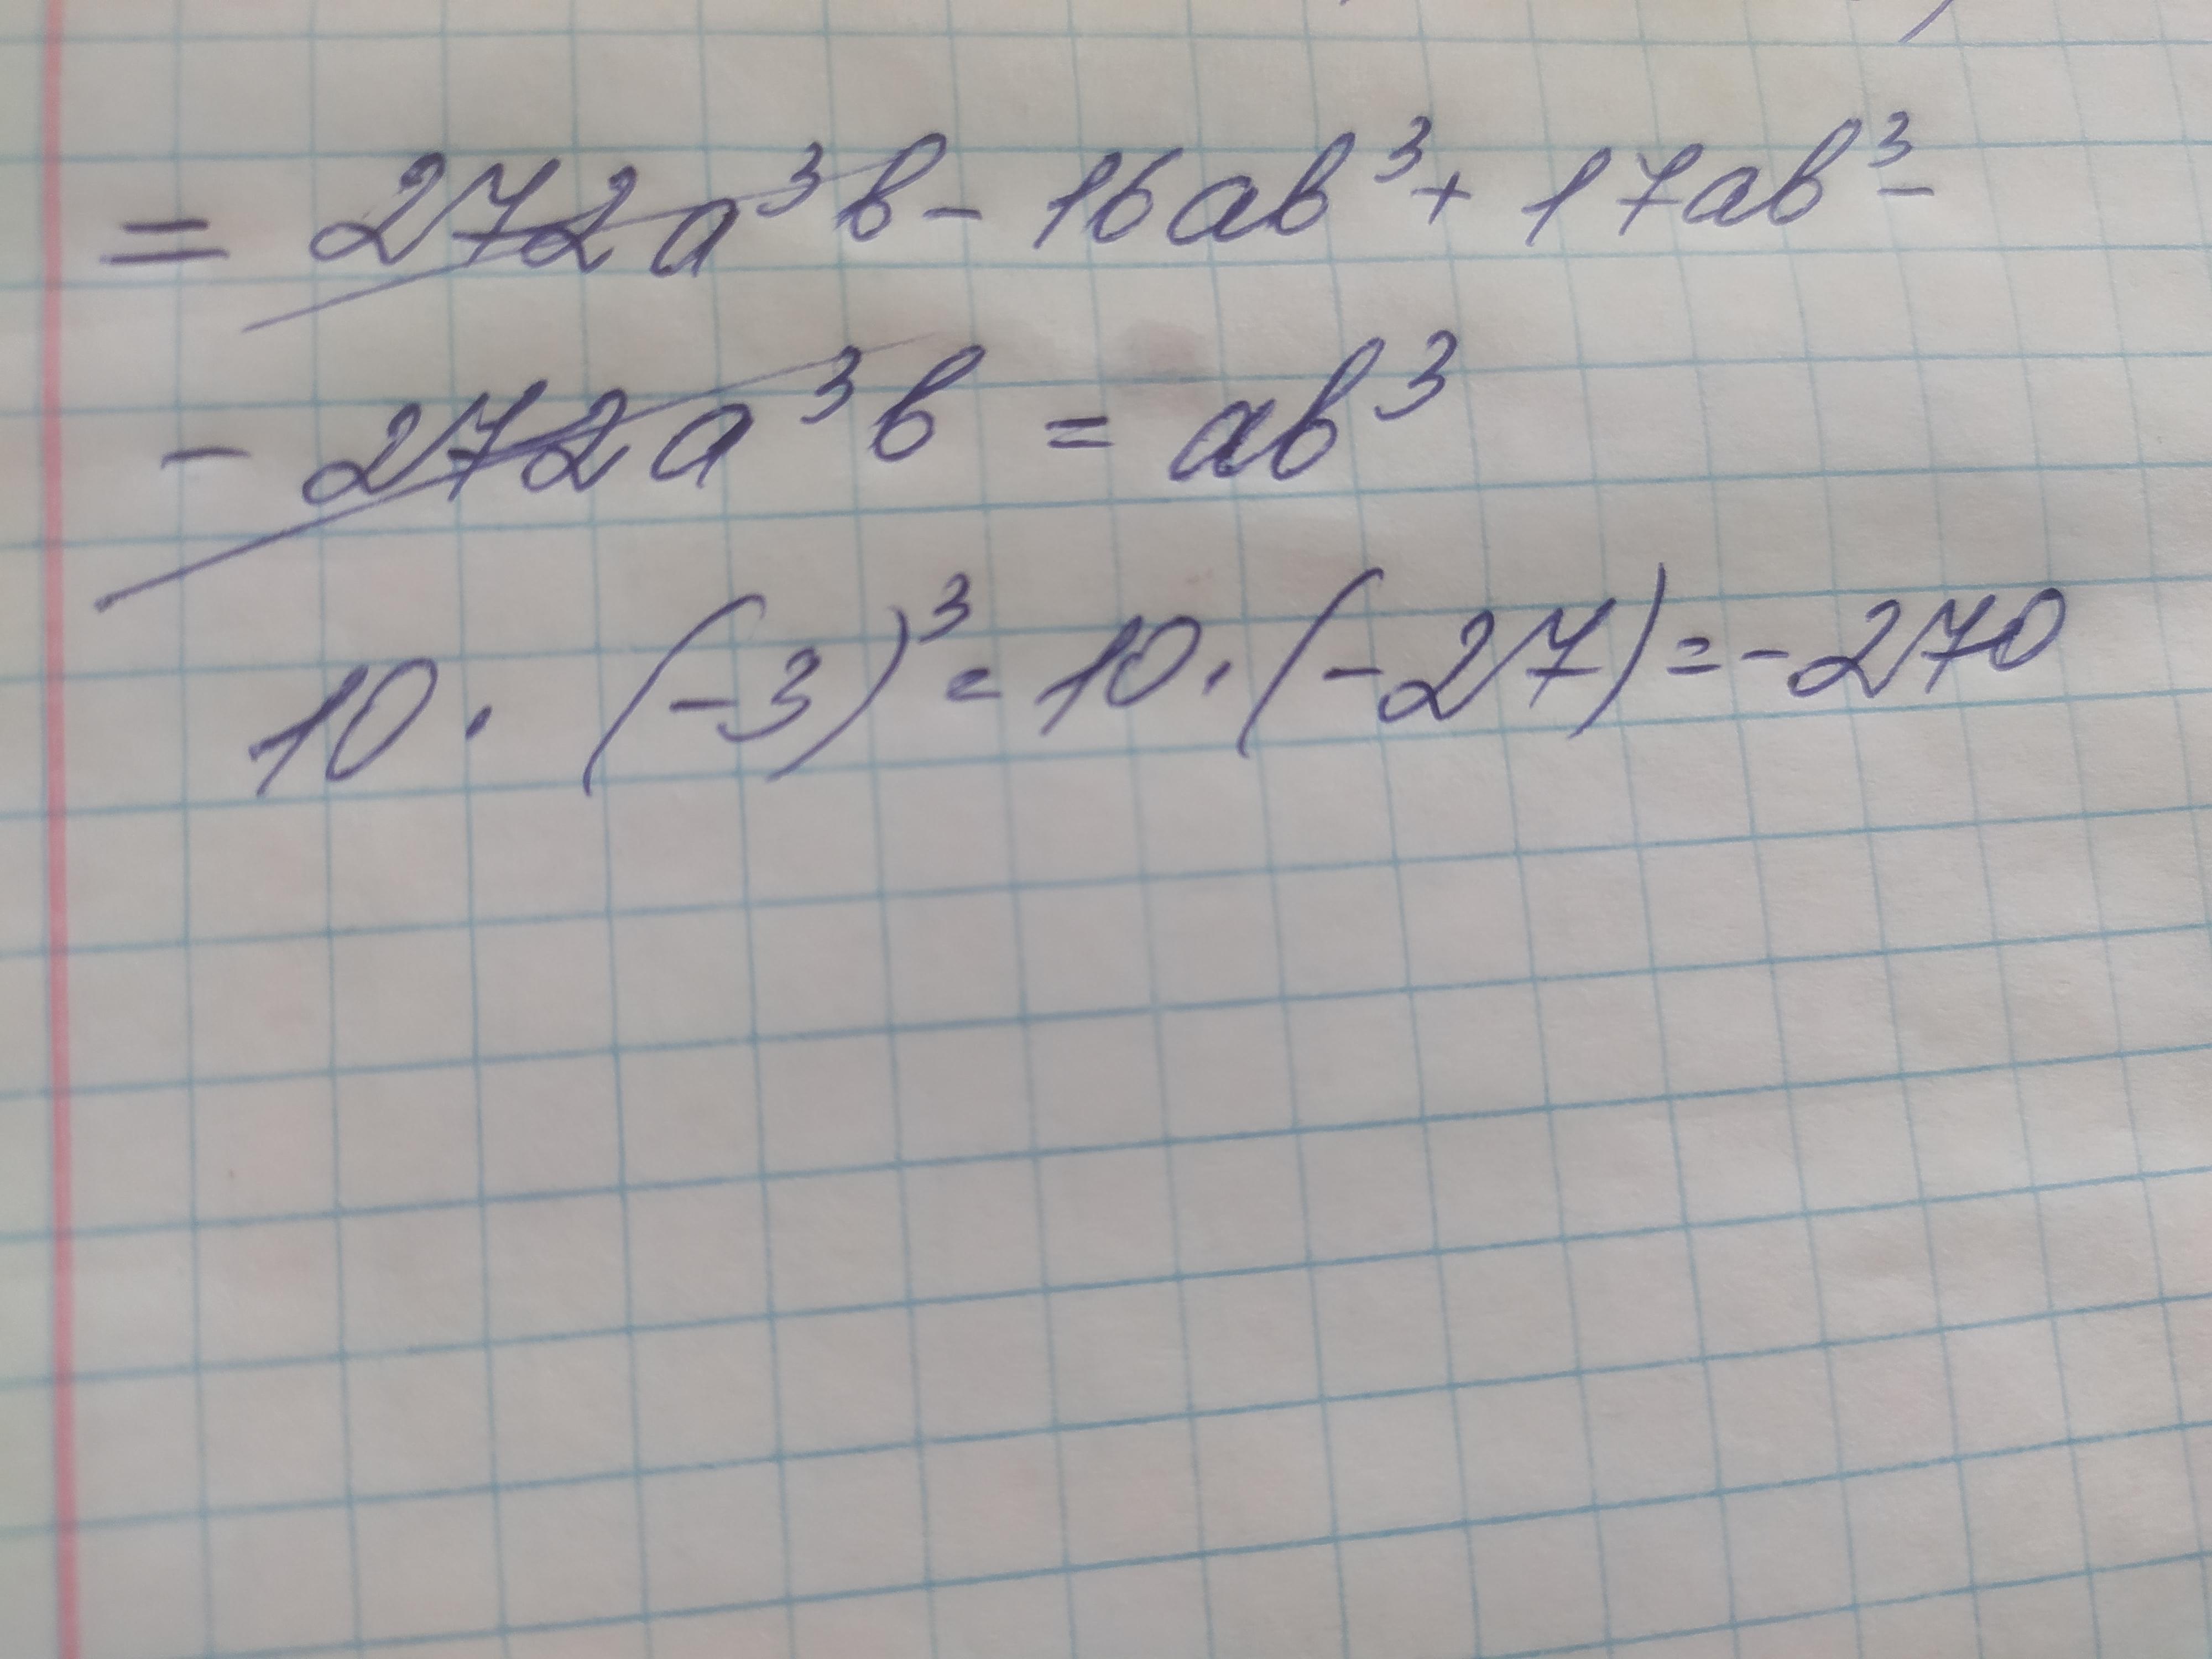 = 272a³b - 16ab³ + 17ab³ -
- 272a³b = ab³
10 · (-3)³ = 10 · (-27) = -270